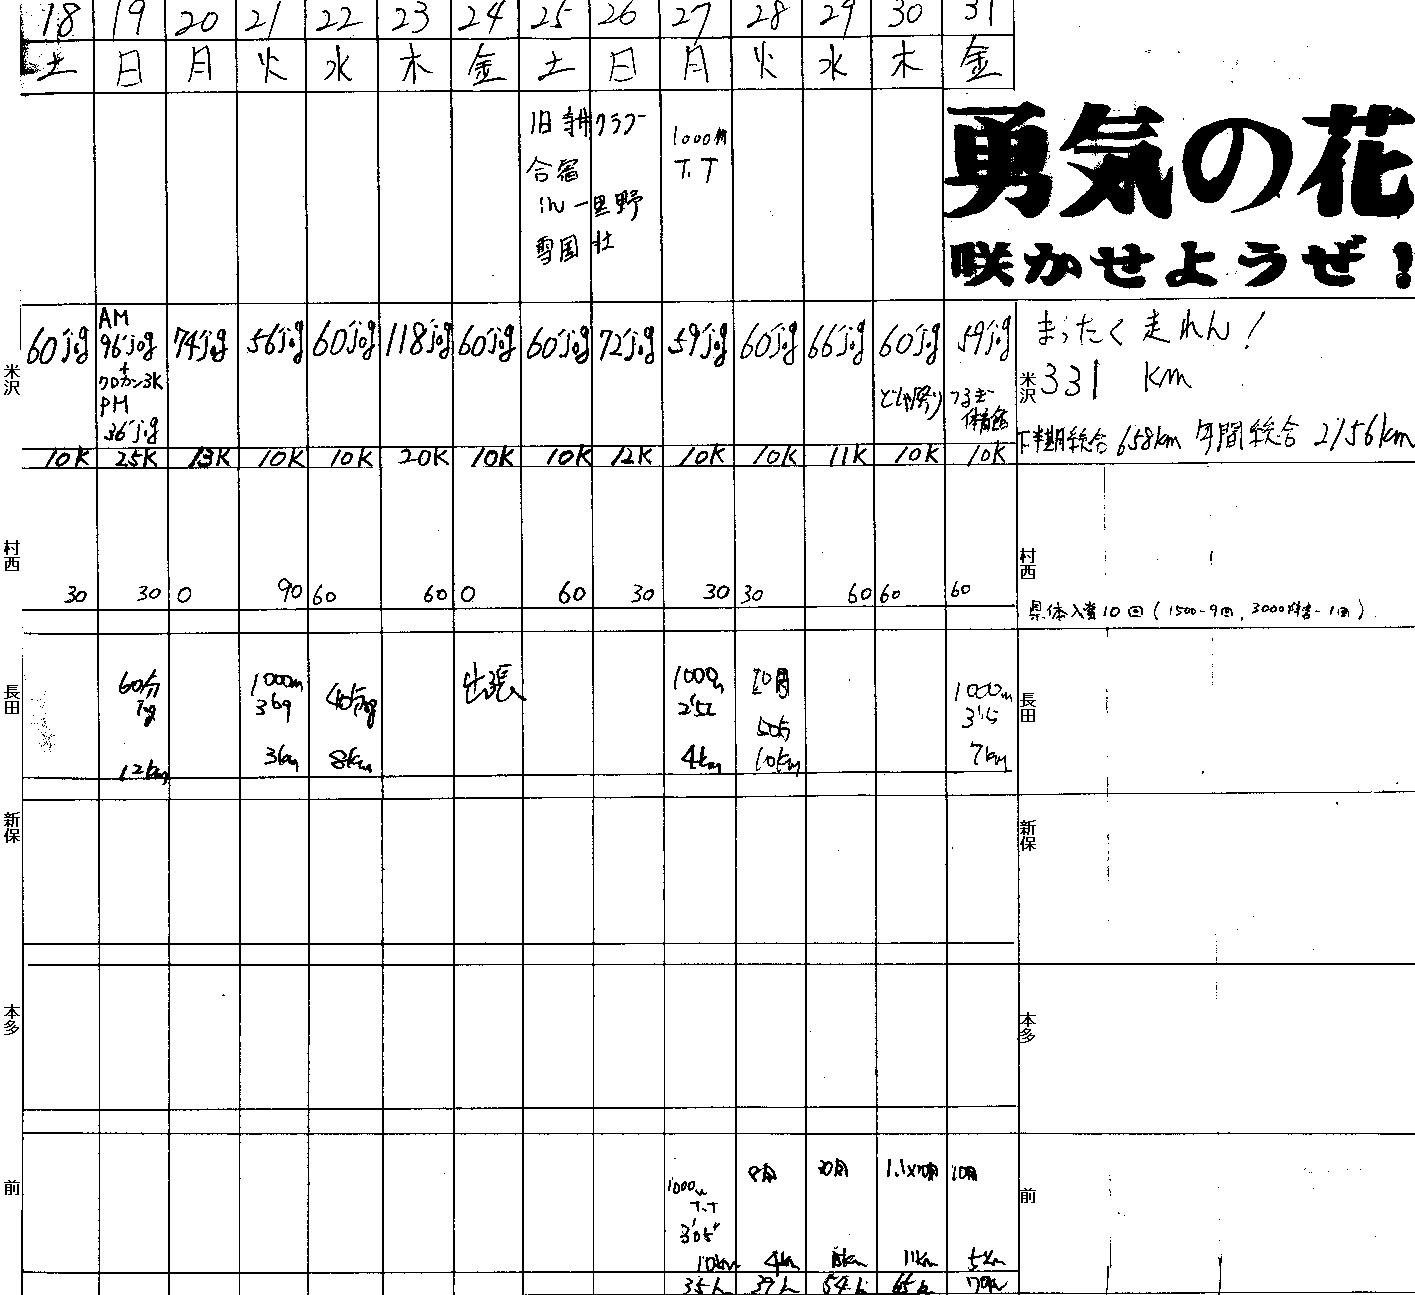 18 19 20 21 22 23 24 25 26 27 28 29 30 31
土 日 月 火 水 木 金 土 日 月 火 水 木 金
合宿
in 一里野
雪国
1000
T.T
勇気の花
咲かせようぜ!
米沢
60'jog
AM
96'jog
+
クロカン3K
PM
36'jog
74'jog
56'jog
60'jog
118'jog
60'jog
60'jog
72'jog
59'jog
60'jog
66'jog
60'jog
59'jog
つるぎ
体育館
10K 25K 13K 10K 10K 20K 10K 10K 12K 10K 10K 11K 10K 10K
米沢
まったく走れん!
331 km
下半期総合 658km 年間総合 2156km
村西
30 30 0 90 60 60 0 60 30 30 30 60 60 60
村西
県体入賞10回(1500-9回, 3000障害-1回)
長田
60分
jog
12km
1000m
3km
40分jog
8km
出張
1000m
2'52
4km
50分
10km
1000m
3'15
7km
長田
新保
新保
本多
本多
前
1000m
T.T
3'05"
10km 4km 11km 5km
前